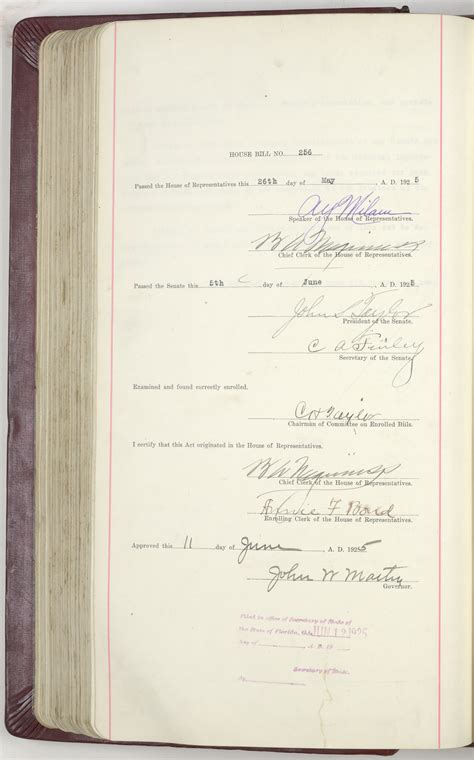 HOUSE BILL NO. 256
Passed the House of Representatives this 26th day of May, A. D. 1925
A Y Milam
Speaker of the House of Representatives.
B A
Chief Clerk of the House of Representatives.
Passed the Senate this 5th day of June, A. D. 1925
John S Taylor
President of the Senate.
C A Finley
Secretary of the Senate.
Examined and found correctly enrolled.
C H Taylor
Chairman of Committee on Enrolled Bills.
I certify that this Act originated in the House of Representatives.
B A
Chief Clerk of the House of Representatives.
F
Enrolling Clerk of the House of Representatives.
Approved this 11 day of June, A. D. 1925
John W Martin
Governor.
Filed in office of Secretary of State of
the State of Florida, JUN 12 1925
day of A. D. 19
Secretary of State.
By